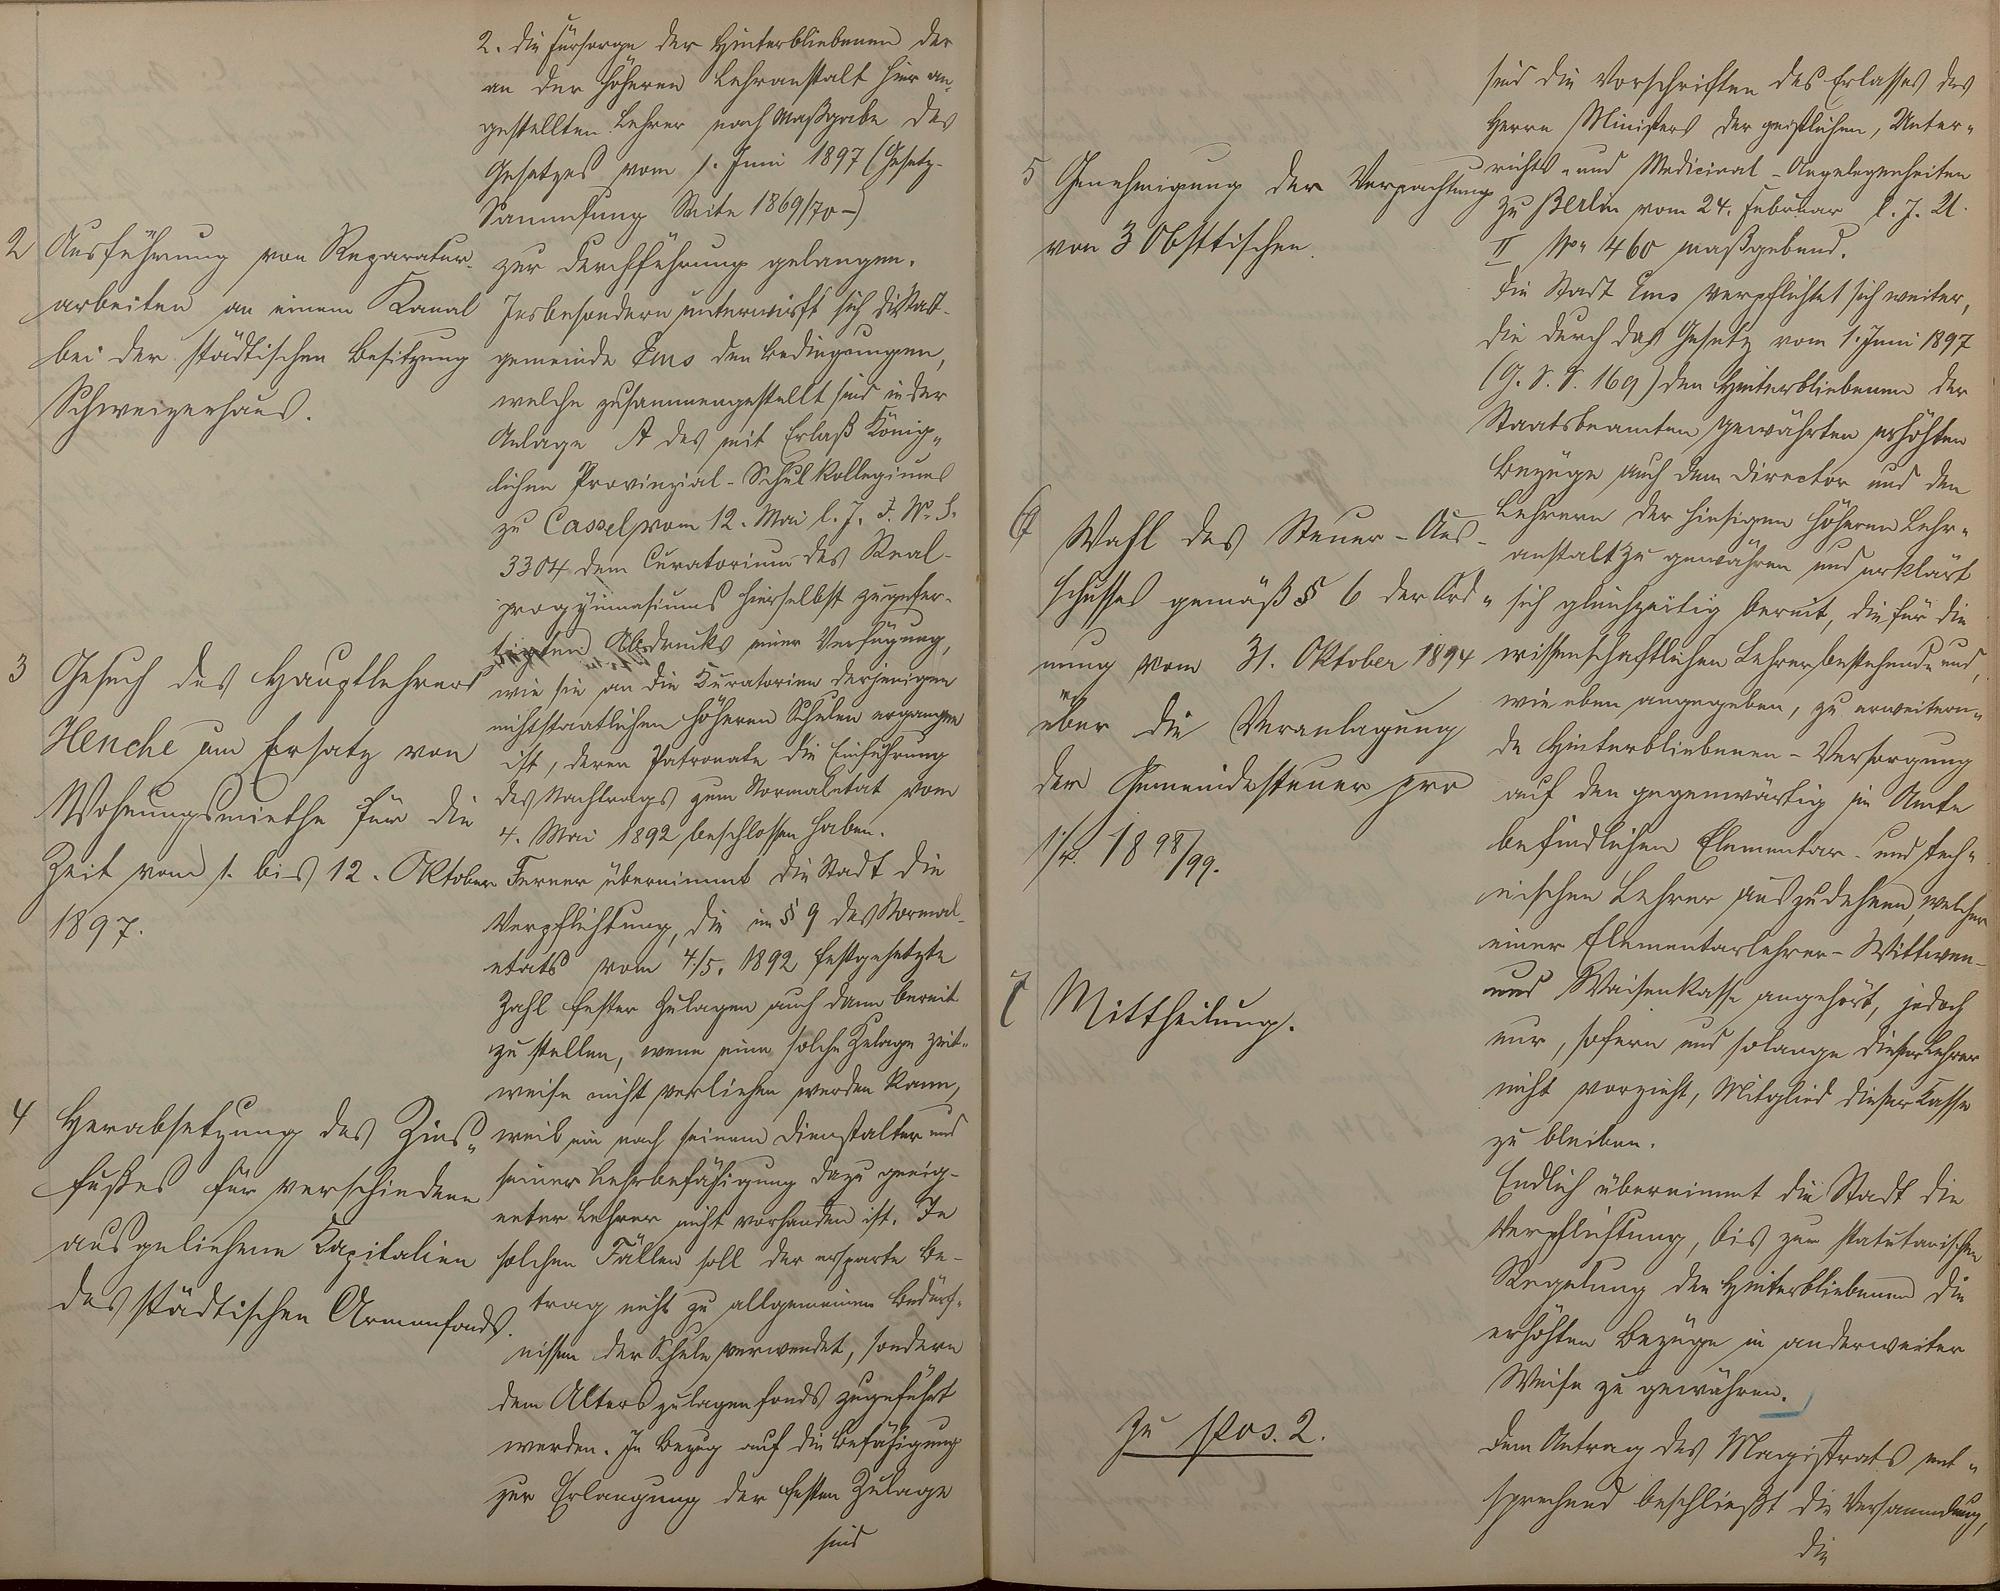 2 Ausführung von Reparatur-
arbeiten an einem Kanal
bei der städtischen Besitzung
Schweizerhaus.
3 Gesuch des Hauptlehrers
Henche um Ersatz von
Wohnungsmiethe für die
Zeit vom 1. bis 12. Oktober
1897.
4 Herabsetzung des Zins-
fußes für verschiedene
ausgeliehene Kapitalien
des städtischen Armenfonds.
2. die Fürsorge der Hinterbliebenen der
an der höheren Lehranstalt hier an-
gestellten Lehrer nach Maßgabe des
Gesetzes vom 1. Juni 1897 (Gesetz-
Sammlung Seite 1869/70-)
zur Durchführung gelangen.
Insbesondere unterwirft sich die Stadt-
gemeinde Ems den Bedingungen,
welche zusammengestellt sind in der
Anlage A des mit Erlaß König-
lichen Provinzial-Schulkollegiums
zu Cassel vom 12. Mai l. J. F. No. S.
3304 dem Curatorium des Real-
progymnasiums hierselbst zugefer-
tigten Abdrucks einer Verfügung,
wie sie an die Kuratorien derjenigen
nichtstaatlichen höheren Schulen ergangen
ist, deren Patronate die Einführung
des Nachtrags zum Normaletat vom
4. Mai 1892 beschlossen haben.
Ferner übernimmt die Stadt die
Verpflichtung, die im § 9 des Normal-
etats vom 4/5. 1892 festgesetzte
Zahl fester Zulagen auch dann bereit
zu stellen, wenn eine solche Zulage zeit-
weise nicht verliehen werden kann,
weil ein nach seinem Dienstalter und
seiner Lehrbefähigung dazu geeig-
neter Lehrer nicht vorhanden ist. In
solchen Fällen soll der ersparte Be-
trag nicht zu allgemeinen Bedürf-
nissen der Schule verwendet, sondern
dem Alterszulagenfonds zugeführt
werden. In Bezug auf die Befähigung
zur Erlangung der festen Zulage
sind
5 Genehmigung der Verpachtung
von 3 Obsttischen.
6 Wahl des Steuer-Aus-
schusses gemäß § 6 der Ord-
nung vom 31. Oktober 1894
über die Veranlagung
der Gemeindesteuer pro
1898/99.
7 Mittheilung.
Zu Pos. 2.
sind die Vorschriften des Erlasses des
Herrn Ministers der geistlichen, Unter-
richts- und Medicinal-Angelegenheiten
zu Berlin vom 24. Februar l. J. U.
II No 460 maßgebend.
Die Stadt Ems verpflichtet sich weiter,
die durch das Gesetz vom 1. Juni 1897
(G. S. S. 169) den Hinterbliebenen der
Staatsbeamten gewährten erhöhten
Bezüge auch dem Director und den
Lehrern der hiesigen höheren Lehr-
anstalt zu gewähren und erklärt
sich gleichzeitig bereit, die für die
wissenschaftlichen Lehrer bestehende und,
wie eben angegeben, zu erweitern-
de Hinterbliebenen-Versorgung
auf den gegenwärtig im Amte
befindlichen Elementar- und tech-
nischen Lehrer auszudehnen, welcher
einer Elementarlehrer-Wittwen-
und Waisenkasse angehört, jedoch
nur, sofern und solange dieser Lehrer
nicht vorzieht, Mitglied dieser Kasse
zu bleiben.
Endlich übernimmt die Stadt die
Verpflichtung, bis zur statutarischen
Regelung den Hinterbliebenen die
erhöhten Bezüge in anderweiter
Weise zu gewähren.
Dem Antrag des Magistrats ent-
sprechend beschließt die Versammlung,
die